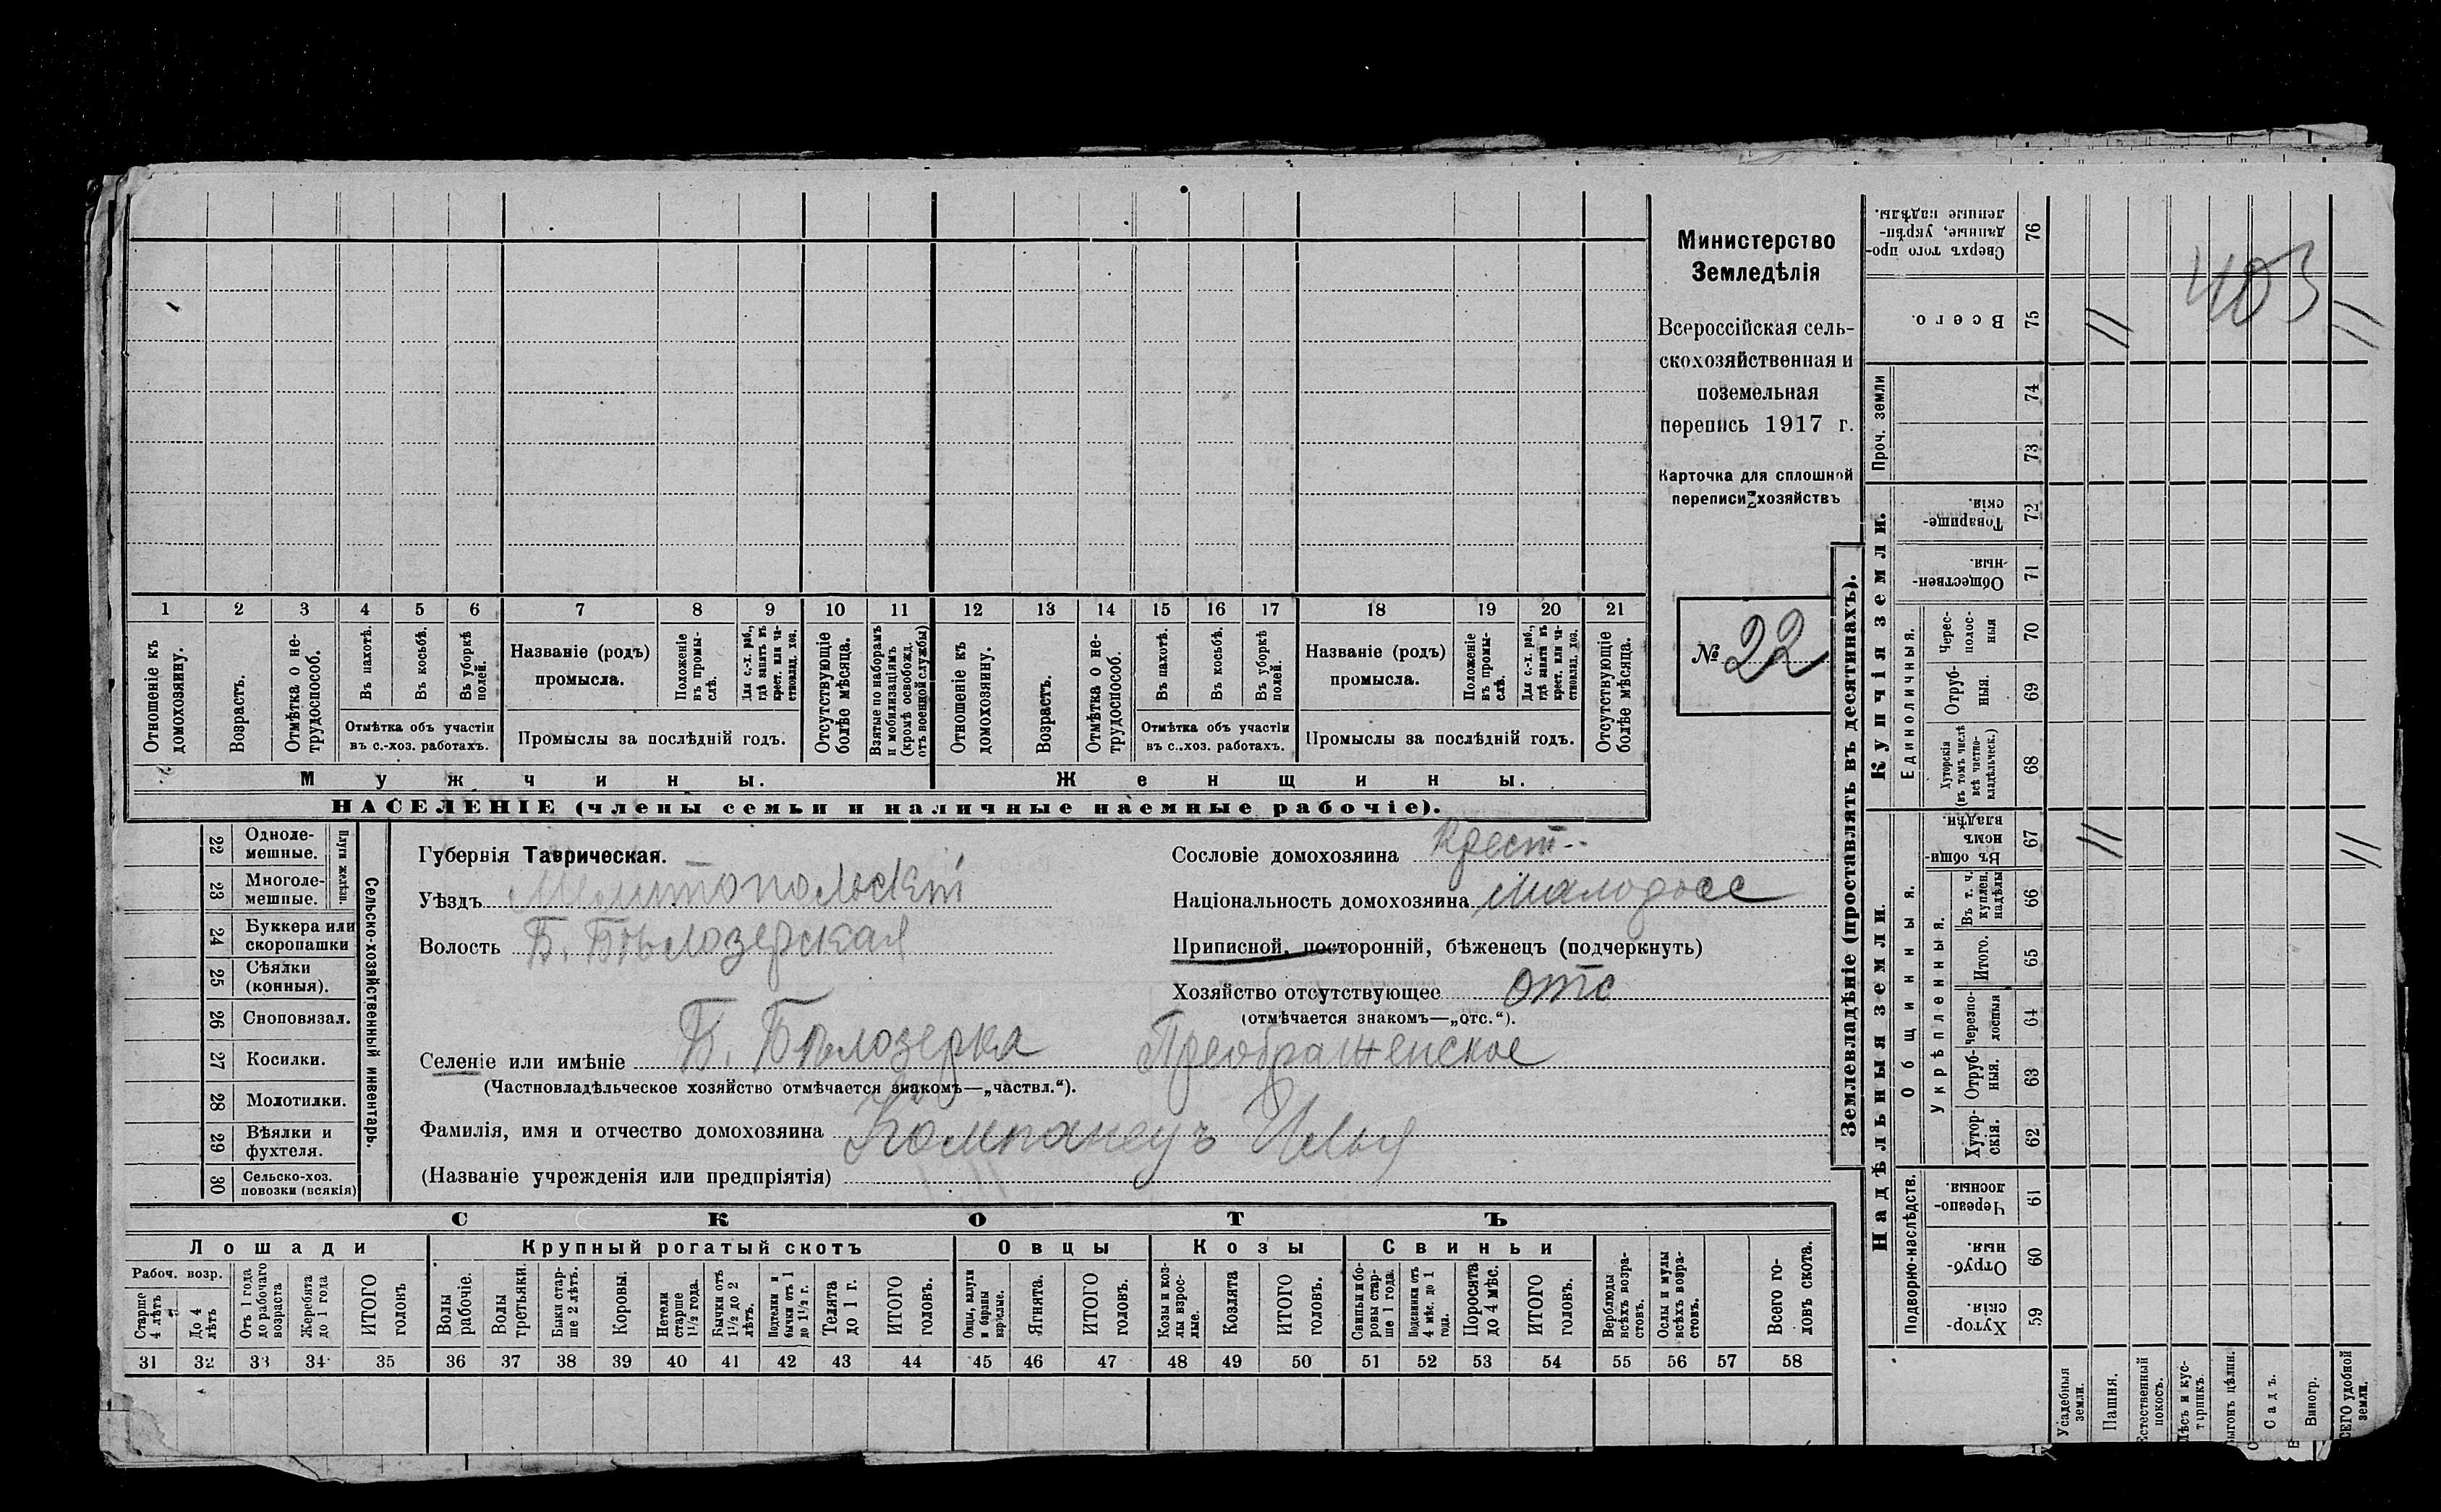 1 2 3 4 5 6 7 8 9 10 11 12 13 14 15 16 17 18 19 20 21
Отношеніе къ домохозяину.
Возрастъ.
Отмѣтка о не-трудоспособ.
Въ пахотѣ.
Въ косьбѣ.
Въ уборкѣ полей.
Отмѣтка объ участіи
въ с.-хоз. работахъ.
Названіе (родъ)
промысла.
Положеніе въ промы-слѣ.
Для с.-х. раб., гдѣ занятъ въ крест. или ча-стновлад. хоз.
Промыслы за послѣдній годъ.
Отсутствующіе болѣе мѣсяца.
Взятые по наборамъ и мобилизаціямъ (кромѣ освобожд. отъ военной службы)
Отношеніе къ домохозяину.
Возрастъ.
Отмѣтка о не-трудоспособ.
Въ пахотѣ.
Въ косьбѣ.
Въ уборкѣ полей.
Отмѣтка объ участіи
въ с.-хоз. работахъ.
Названіе (родъ)
промысла.
Положеніе въ промы-слѣ.
Для с.-х. раб., гдѣ занята въ крест. или ча-стновлад. хоз.
Промыслы за послѣдній годъ.
Отсутствующіе болѣе мѣсяца.
Мужчины.
Женщины.
НАСЕЛЕНІЕ (члены семьи и наличные наемные рабочіе).
Министерство
Земледѣлія
Всероссійская сель-
скохозяйственная и
поземельная
перепись 1917 г.
Карточка для сплошной
переписи хозяйствъ
№ 22
22 Одноле-мешные.
23 Многоле-мешные.
Плуги желѣзн.
24 Буккера или скоропашки
25 Сѣялки (конныя).
26 Сноповязал.
27 Косилки.
28 Молотилки.
29 Вѣялки и фухтеля.
30 Сельско-хоз. повозки (всякія)
Сельско-хозяйственный инвентарь.
Губернія Таврическая.
Уѣздъ Мелитопольскій
Волость Б. Бѣлозерская
Сословіе домохозяина Крест.
Національность домохозяина Малоросс
Приписной, посторонній, бѣженецъ (подчеркнуть)
Хозяйство отсутствующее отс
(отмѣчается знакомъ—„отс.“).
Селеніе или имѣніе Б. Бѣлозерка Преображенское
(Частновладѣльческое хозяйство отмѣчается знакомъ—„частвл.“).
Фамилія, имя и отчество домохозяина Компанецъ Илья
(Названіе учрежденія или предпріятія)
СКОТЪ
Лошади
Крупный рогатый скотъ
Овцы
Козы
Свиньи
Рабоч. возр.
Старше 4 лѣтъ
До 4 лѣтъ
Отъ 1 года до рабочаго возраста
Жеребята до 1 года
ИТОГО головъ
Волы рабочіе.
Волы третьяки.
Быки стар-ше 2 лѣтъ.
Коровы.
Нетели старше 1½ года.
Бычки отъ 1½ до 2 лѣтъ.
Подтелки и бычки отъ 1 до 1½ г.
Телята до 1 г.
ИТОГО головъ.
Овцы, валухи и бараны взрослые.
Ягнята.
ИТОГО головъ.
Козы и коз-лы взрос-лые.
Козлята
ИТОГО головъ.
Свиньи и бо-ровы стар-ше 1 года.
Подсвинки отъ 4 мѣс. до 1 года.
Поросята до 4 мѣс.
ИТОГО головъ.
Верблюды всѣхъ возра-стовъ.
Ослы и мулы всѣхъ возра-стовъ.
Всего го-ловъ скота.
31 32 33 34 35 36 37 38 39 40 41 42 43 44 45 46 47 48 49 50 51 52 53 54 55 56 57 58
Землевладѣніе (проставлять въ десятинахъ).
Надѣльныя земли.
Подворно-наслѣдств.
Хутор-скія. 59
Отруб-ныя. 60
Черезпо-лосныя. 61
Общинныя.
Укрѣпленныя.
Хутор-скія. 62
Отруб-ныя. 63
Черезпо-лосныя 64
Итого. 65
Въ т. ч. куплен. надѣлы 66
Въ общи-номъ владѣн. 67 //
//
Купчія земли.
Единоличныя.
Хуторскія (въ томъ числѣ всѣ частно-владѣльческ.) 68
Отруб-ныя. 69
Черес-полос-ныя 70
Обществен-ныя. 71
Товарище-скія. 72
Проч. земли
73
74
Всего. 75 //
//
Сверхъ того про-данные, укрѣп-ленные надѣлы. 76
403
Усадебныя земли.
Пашня.
Естественный покосъ.
Лѣсъ и кус-тарникъ.
Выгонъ цѣлин.
Садъ.
Виногр.
ВСЕГО удобной земли.